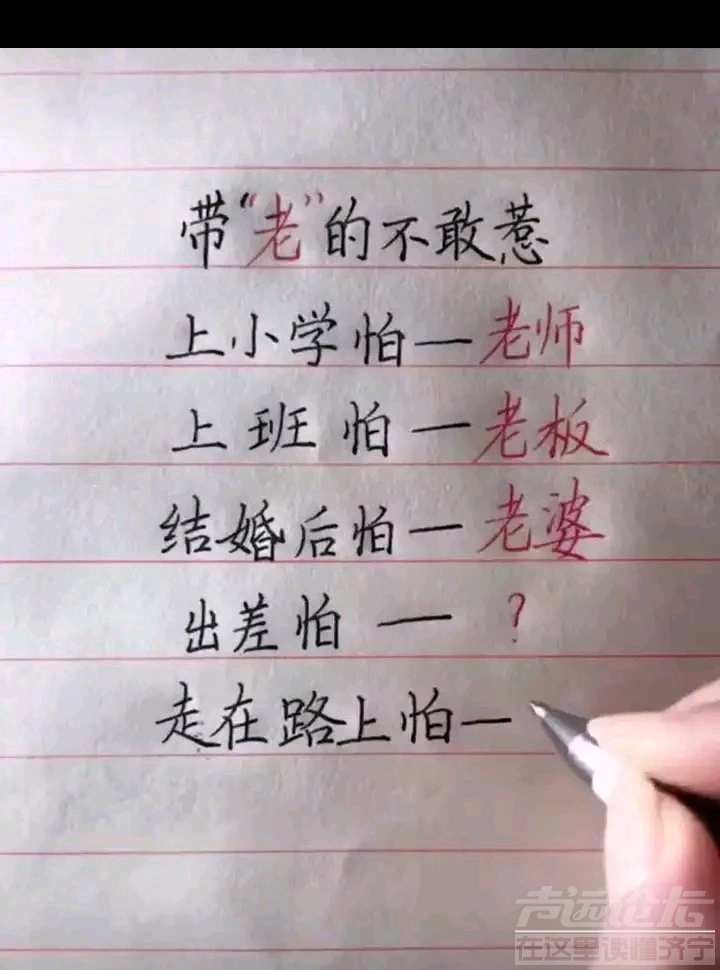 带“老”的不敢惹
上小学怕—老师
上班怕—老板
结婚后怕—老婆
出差怕—?
走在路上怕—
声远论坛
在这里读懂济宁